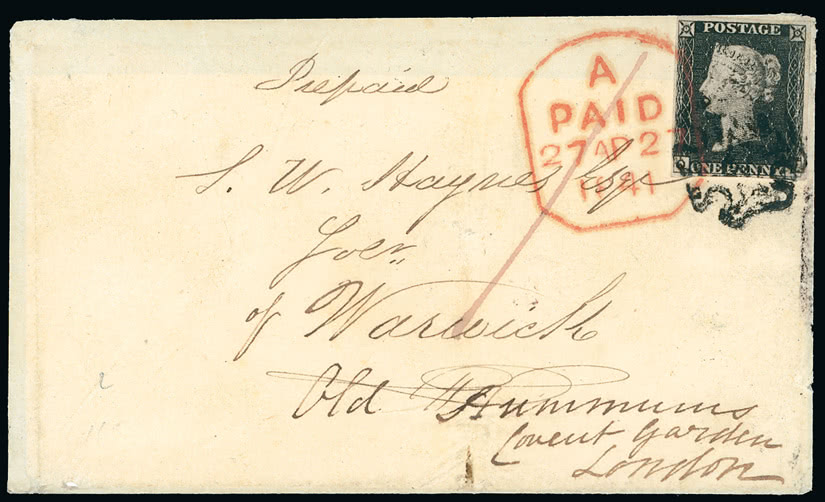 POSTAGE
ONE PENNY
A
PAID
27 AP 27
1841
Prepaid
S. W. Haynes Esqr
of Warwick
Old Hummums
Covent Garden
London